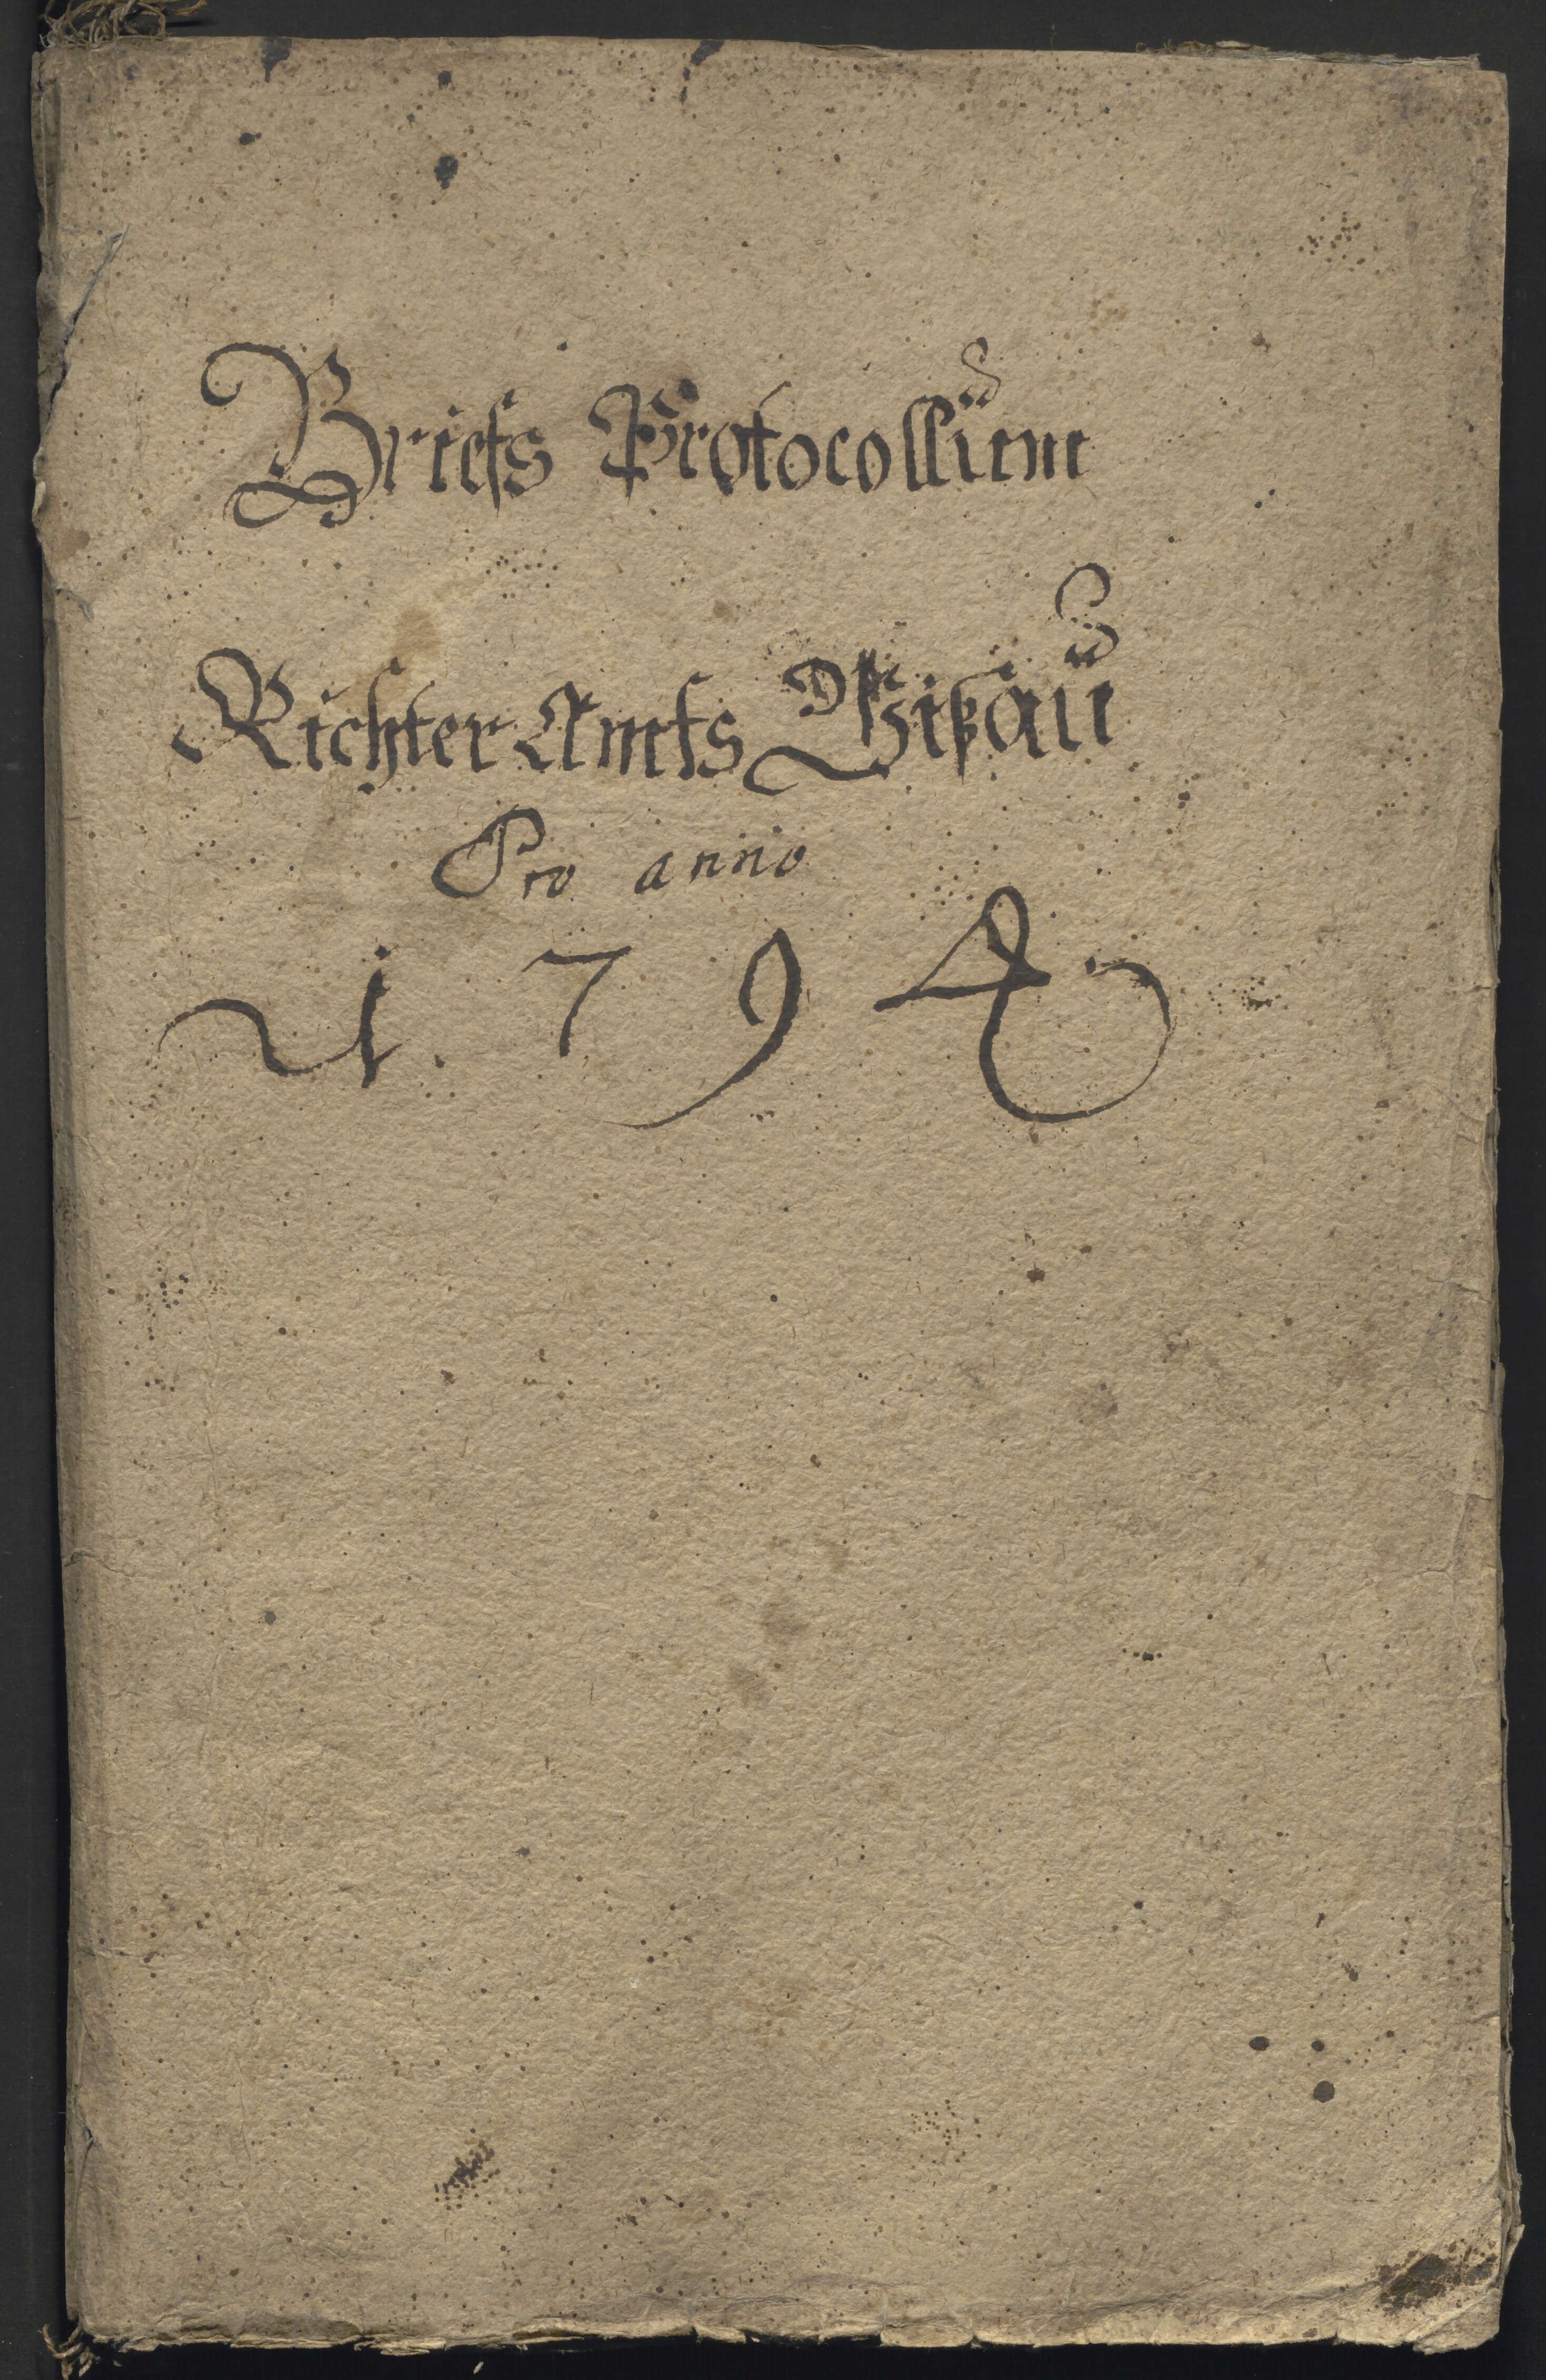 Briefs Protocollum
Richter Amts
Pro anno
1794